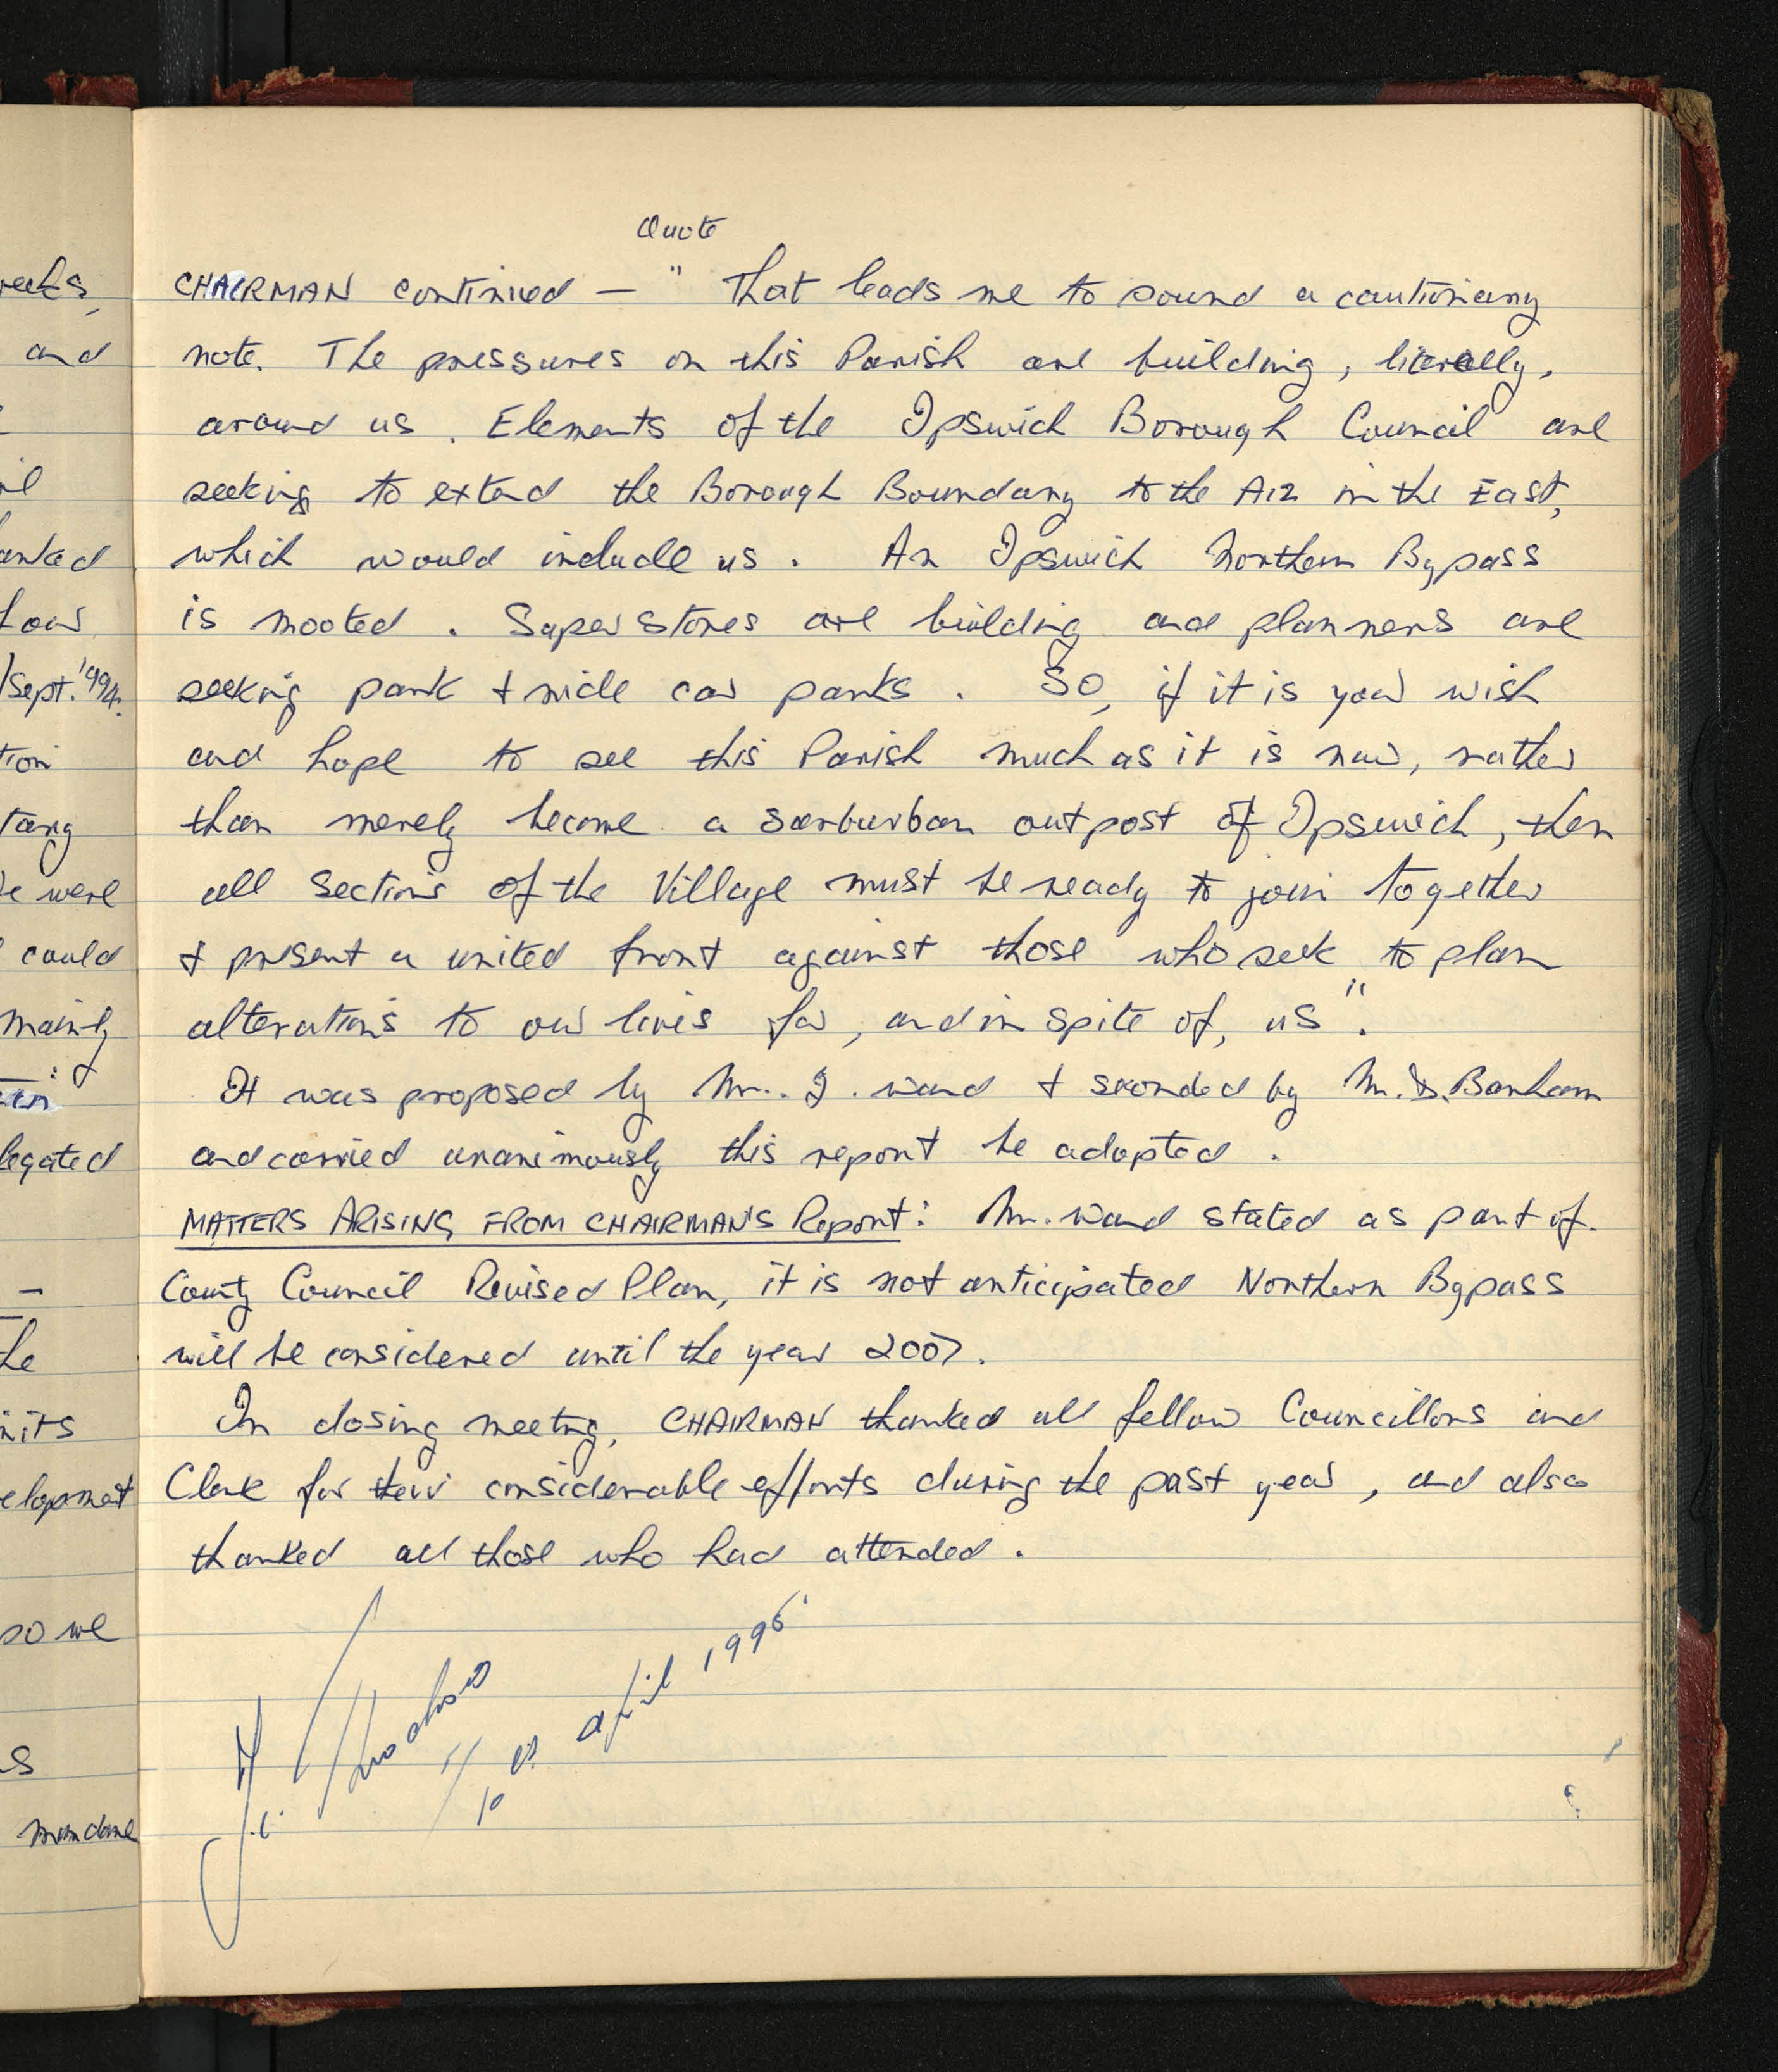 Quote
CHAIRMAN continued — " That leads me to sound a cautionary
note. The pressures on this Parish are building, literally,
around us. Elements of the Ipswich Borough Council are
seeking to extend the Borough Boundary to the A12 in the East,
which would include us. An Ipswich Northern Bypass
is mooted. Super Stores are building and planners are
seeking park & ride car parks. SO, if it is your wish
and hope to see this Parish much as it is now, rather
than merely become a surburban outpost of Ipswich, then
all sections of the Village must be ready to join together
& present a united front against those who seek to plan
alterations to our lives for, and in spite of, us".
It was proposed by Mr. J. Ward & seconded by M. D. Banham
and carried unanimously this report be adopted.
MATTERS ARISING FROM CHAIRMAN'S Report: Mr. Ward stated as part of
County Council Revised Plan, it is not anticipated Northern Bypass
will be considered until the year 2007.
In closing meeting, CHAIRMAN thanked all fellow Councillors and
Clerk for their considerable efforts during the past year, and also
thanked all those who had attended.
april 1996
10
and
Sept. '94.
we were
could
mainly
legated
the
so we
mundane